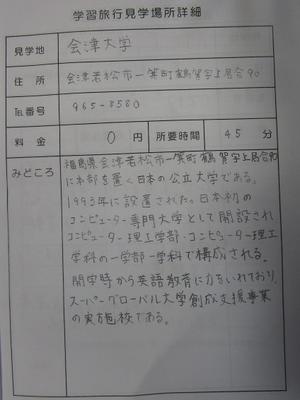 学習旅行見学場所詳細
見学地 会津大学
住所 会津若松市一箕町鶴賀字上居合90
TEL番号 965-8580
料金 0円 所要時間 45分
みどころ 福島県会津若松市一箕町鶴賀字上居合90
に本部を置く日本の公立大学である。
1993年に設置された。日本初の
コンピューター専門大学として開設され
コンピューター理工学部・コンピューター理工
学科の一学部一学科で構成される。
開学時から英語教育に力をいれており、
スーパーグローバル大学創成支援事業
の実施校である。